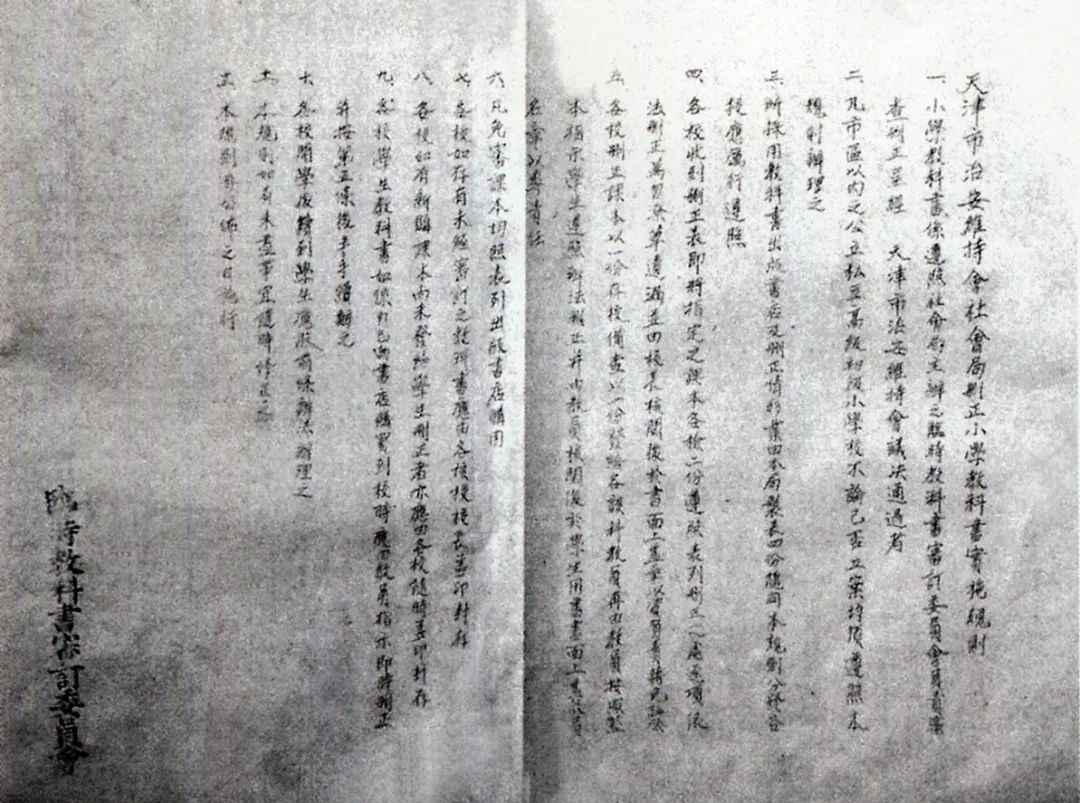 天津市治安維持會社會局刪正小學教科書實施規則
一、小學教科書係遵照社會局主辦之臨時教科書審訂委員會負責審
查刪正並經 天津市治安維持會議決通過者
二、凡市區以內之公立私立高級初級小學校不論已否立案均須遵照本
規則辦理之
三、所採用教科書出版書店及刪正情形業由本局製表四份隨同本規則分發各
校應厲行遵照
四、各校收到刪正表即將指定之課本各檢二份遵照表列刪正之處逐項依
法刪正萬勿草率遺漏並由校長校閱後於書面上蓋章以
五、各校刪正課本以一份存校備查以一份發給各該科教員再由教員按照
本指示學生遵照辦法刪正並由教員校閱後於學生用書書面上
名章以專責任
六、凡免審課本切照表列出版書店購用
七、各校如存有未經審訂之教科書應由各校校長蓋印封存
八、各校如有新購課本尚未發給學生刪正者亦應由各校隨時蓋印封存
九、各校學生教科書如係自己向書店購買到校時應由教員指示即時刪正
並按第五條後半手續辦之
十、各校開學後續到學生應照前條辦法辦理之
十一、本規則如有未盡事宜隨時修正之
十二、本規則自公佈之日施行
臨時教科書審訂委員會